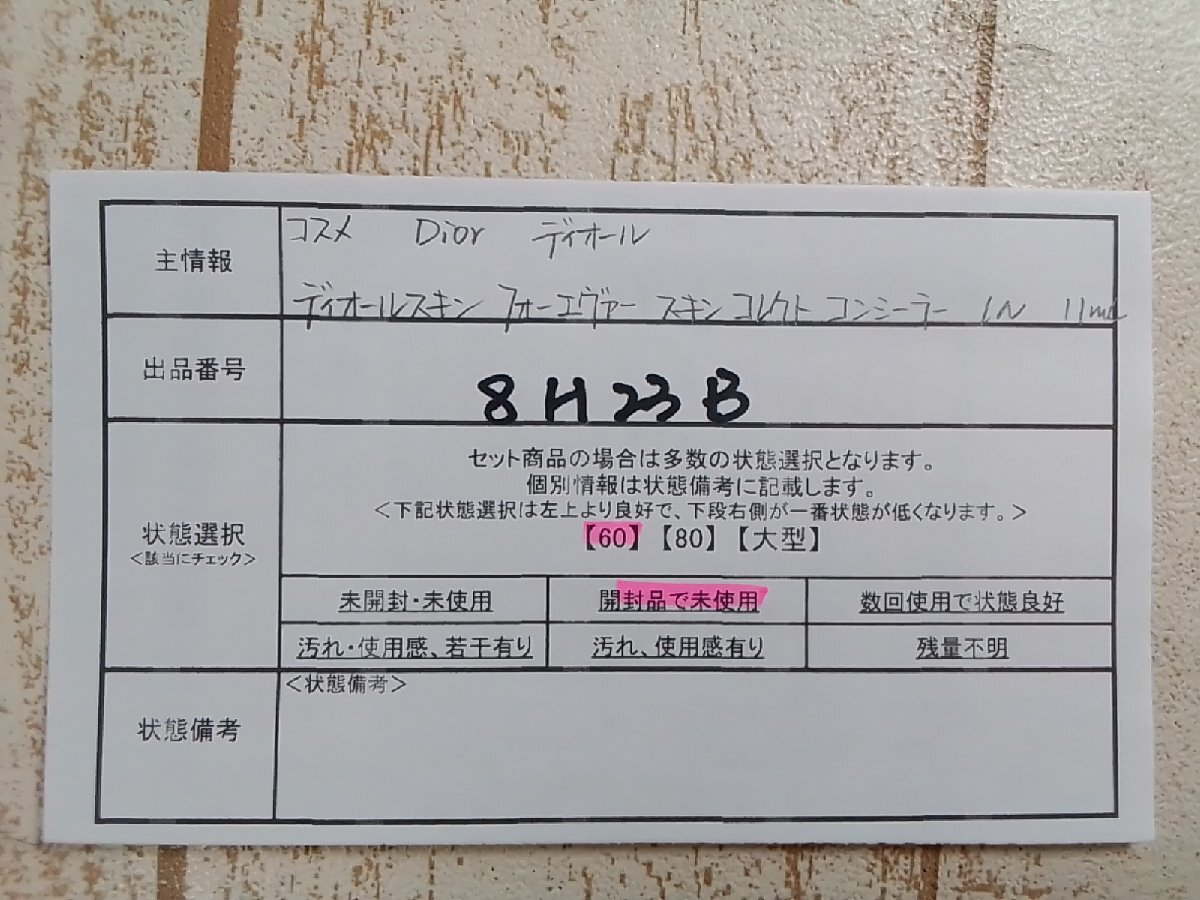 主情報
コスメ Dior ディオール
ディオールスキン フォーエヴァー スキンコレクト コンシーラー 1N 11mL
出品番号
8H23B
状態選択
<該当にチェック>
セット商品の場合は多数の状態選択となります。
個別情報は状態備考に記載します。
<下記状態選択は左上より良好で、下段右側が一番状態が低くなります。>
【60】【80】【大型】
未開封・未使用 開封品で未使用 数回使用で状態良好
汚れ・使用感、若干有り 汚れ、使用感有り 残量不明
状態備考
<状態備考>